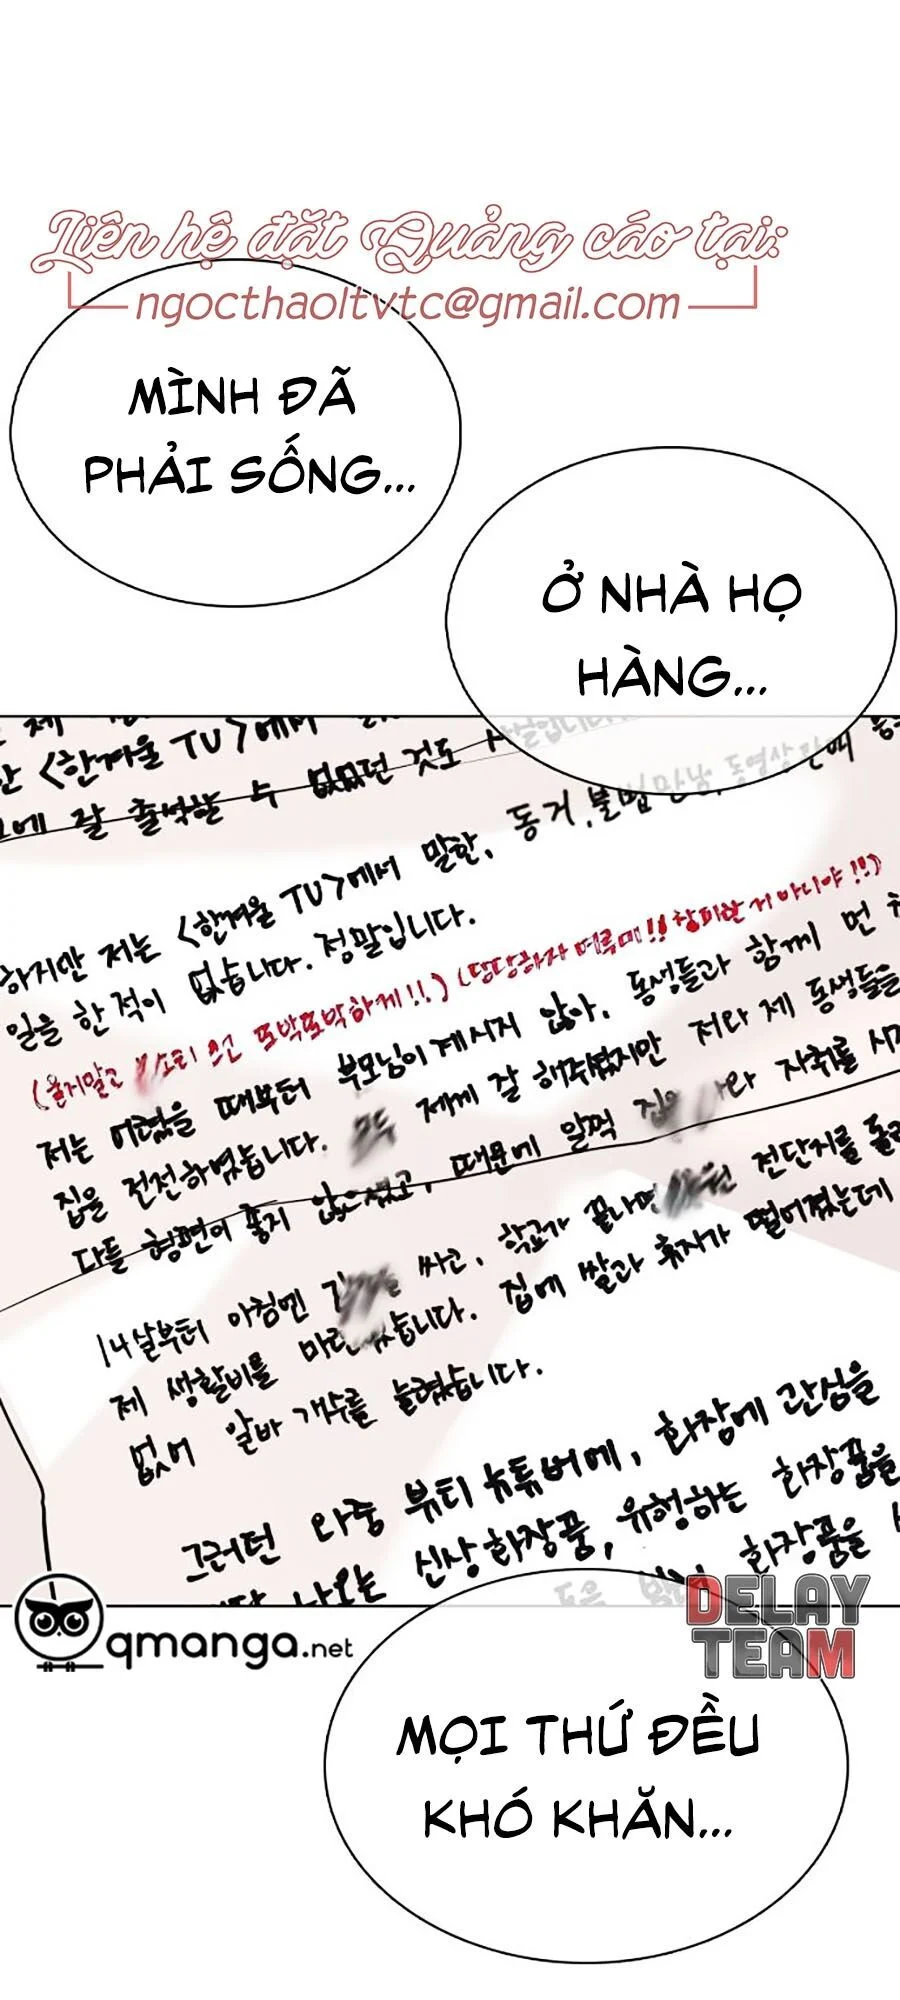 Liên hệ đặt Quảng cáo tại:
ngocthaoltvtc@gmail.com
MÌNH ĐÃ
PHẢI SỐNG...
Ở NHÀ HỌ
HÀNG...
<한겨울 TV>에서
에 잘 출석할 수 없었던 것도
하지만 저는 <한겨울 TV>에서 말한, 동거, 불법만남, 동영상
일을 한 적이 없습니다. 정말입니다.
(울지말고 또박또박하게!!) (당당하자 창피한 거 아니야!!)
저는 어렸을 때부터 부모님이 계시지 않아. 동생들과 함께 먼 친
집을 전전하였습니다. 모두 제게 잘 해주셨지만 저와 제 동생들을
다들 형편이 좋지 않으셨고, 때문에 일찍 나와 자취를 시
14살부터 아침엔 싸고, 학교가 끝나면 전단지를 돌리
제 생활비를 마련했습니다. 집에 쌀과 휴지가 떨어졌는데
없어 알바 개수를 늘렸습니다.
그러던 와중 뷰티 뉴튜버에, 화장에 관심을
나오는 신상화장품, 유행하는 화장품을
화장품을
qmanga.net
DELAY
TEAM
MỌI THỨ ĐỀU
KHÓ KHĂN...